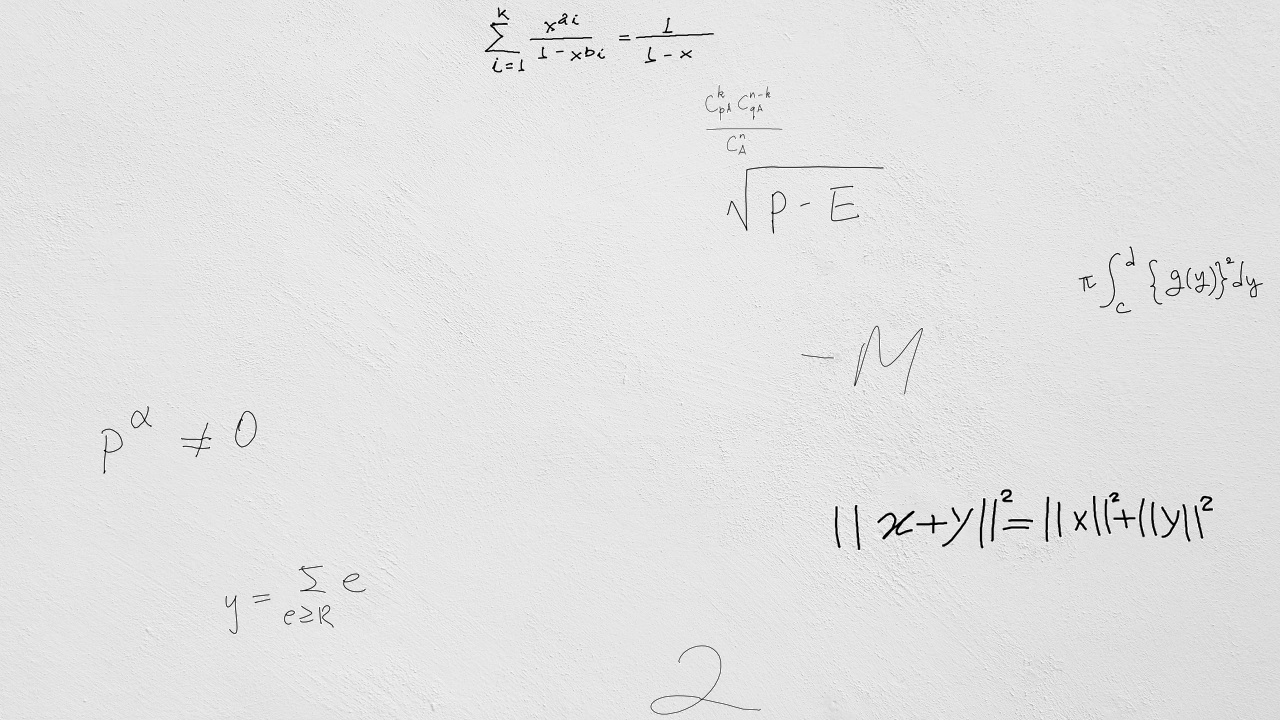 \sum_{i=1}^{k} \frac{x^{a_i}}{1-x^{b_i}} = \frac{1}{1-x}
\frac{C_{pA}^{k} C_{qA}^{n-k}}{C_{A}^{n}}
\sqrt{p-E}
\pi \int_{c}^{d} \{g(y)\}^{2} dy
-M
p^{\alpha} \neq 0
||x+y||^{2} = ||x||^{2} + ||y||^{2}
y = \sum_{e \geq R} e
2